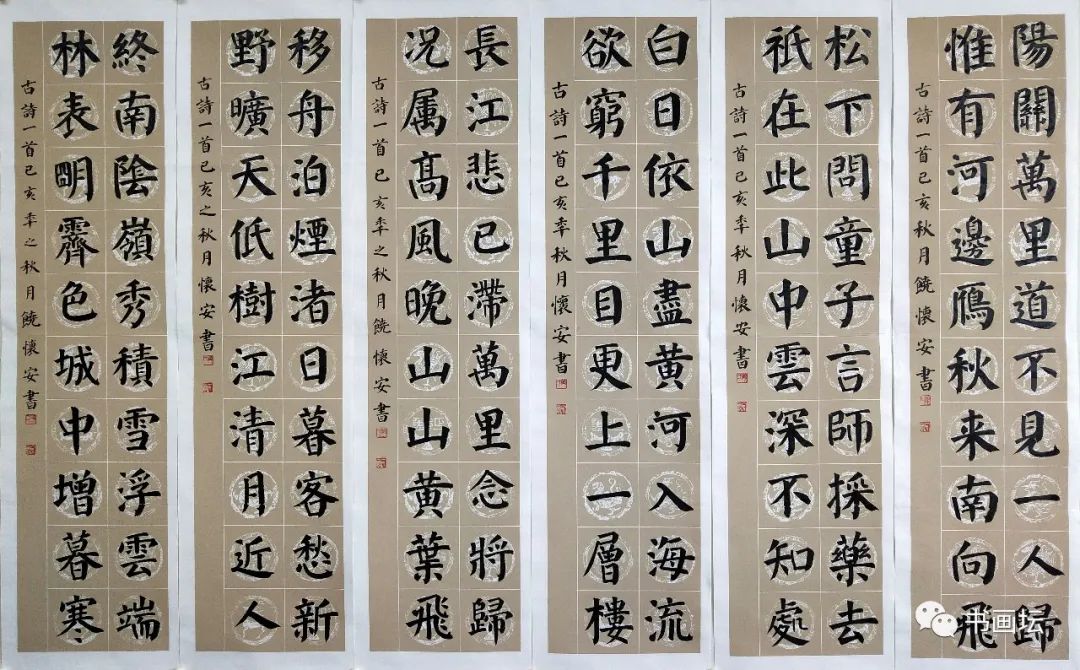 陽關萬里道不見一人歸
惟有河邊鴈秋来南向飛
古詩一首己亥年秋月饶懷安書
松下問童子言師採藥去
祇在此山中雲深不知處
古詩一首己亥年秋月懷安書
白日依山盡黃河入海流
欲窮千里目更上一層樓
古詩一首己亥年秋月懷安書
長江悲已滯萬里念將歸
况属高風晚山山黃葉飛
古詩一首己亥年之秋月饶懷安書
移舟泊煙渚日暮客愁新
野曠天低樹江清月近人
古詩一首己亥之秋月懷安書
終南陰嶺秀積雪浮雲端
林表明霽色城中增暮寒
古詩一首己亥年之秋月饶懷安書
书画坛